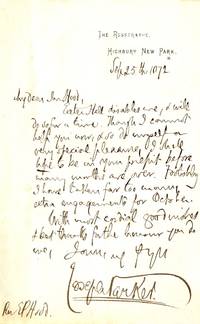 THE ROSETREVOR,
HIGHBURY NEW PARK.
Sep. 25th 1872
My dear Mr Hood,
Exeter Hall disables me, & will
do so for a time. Though I cannot
help you now, & do myself a
very special pleasure, I shall
like to be in your pulpit before
many months are over. Foolishly
I have taken far too many
extra engagements for October.
With most cordial good wishes
& best thanks for the honour you do
me,
Yours, my
Joseph Parker.
Rev. E P Hood.